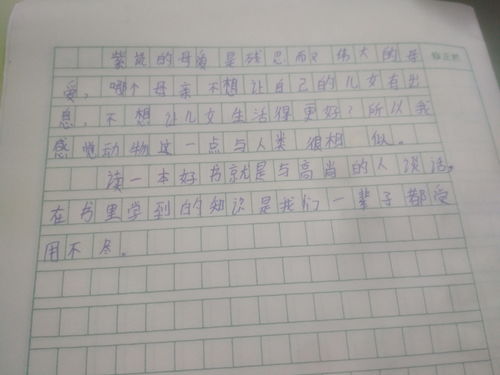 紫岚的母爱是残忍而又伟大的母
爱，哪个母亲不想让自己的儿女有出
息，不想让儿女生活得更好？所以我
感觉动物这一点与人类很相似。
读一本好书就是与高尚的人谈话，
在书里学到的知识是我们一辈子都受
用不尽。